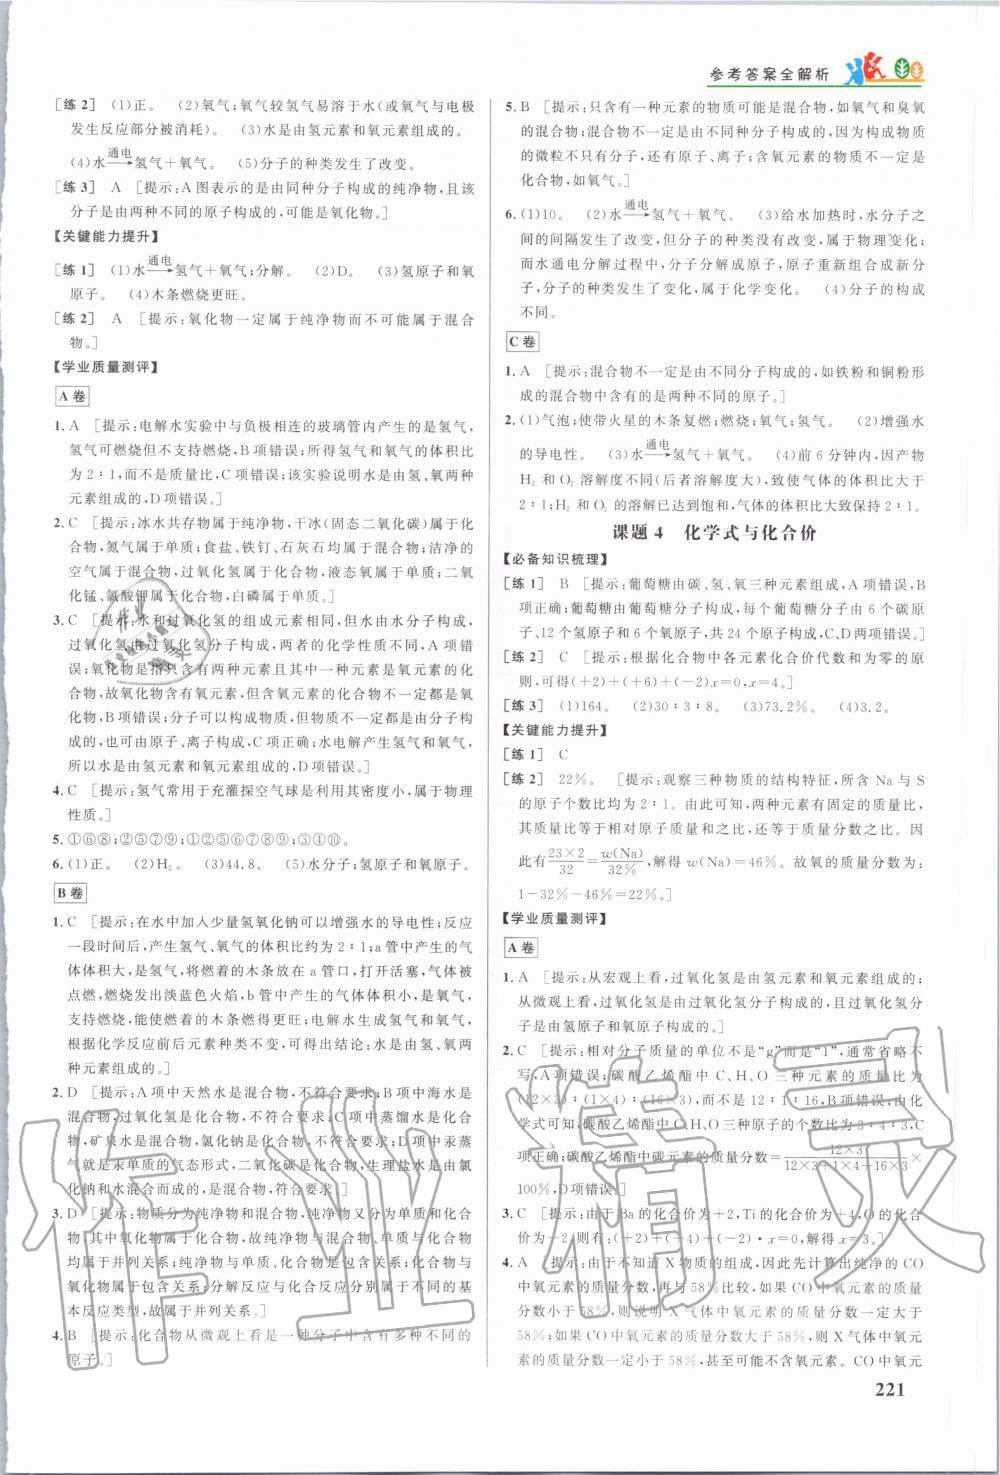 参考答案全解析
[练2] (1)正。 (2)氧气;氧气较氢气易溶于水(或氧气与电极
发生反应部分被消耗)。 (3)水是由氢元素和氧元素组成的。
(4)水通电→氢气+氧气。 (5)分子的种类发生了改变。
[练3] A [提示:A图表示的是由同种分子构成的纯净物,且该
分子是由两种不同的原子构成的,可能是氧化物。]
【关键能力提升】
[练1] (1)水通电→氢气+氧气;分解。 (2)D。 (3)氢原子和氧
原子。 (4)木条燃烧更旺。
[练2] A [提示:氧化物一定属于纯净物而不可能属于混合
物。]
【学业质量测评】
A卷
1. A [提示:电解水实验中与负极相连的玻璃管内产生的是氢气,
氢气可燃烧但不支持燃烧,B项错误;所得氢气和氧气的体积比
为2∶1,而不是质量比,C项错误;该实验说明水是由氢、氧两种
元素组成的,D项错误。]
2. C [提示:冰水共存物属于纯净物,干冰(固态二氧化碳)属于化
合物,氮气属于单质;食盐、铁钉、石灰石均属于混合物;洁净的
空气属于混合物,过氧化氢属于化合物,液态氧属于单质;二氧
化锰、氯酸钾属于化合物,白磷属于单质。]
3. C [提示:水和过氧化氢的组成元素相同,但水由水分子构成,
过氧化氢由过氧化氢分子构成,两者的化学性质不同,A项错
误;氧化物是指只含有两种元素且其中一种元素是氧元素的化
合物,故氧化物含有氧元素,但含氧元素的化合物不一定都是氧
化物,B项错误;分子可以构成物质,但物质不一定都由分子构
成,也可由原子、离子构成,C项正确;水电解产生氢气和氧气,
所以水是由氢元素和氧元素组成的,D项错误。]
4. C [提示:氢气常用于充灌探空气球是利用其密度小,属于物理
性质。]
5. ①⑥⑧;②⑤⑦⑨;①②⑤⑦⑧⑨;③④⑩。
6. (1)正。 (2)H₂。 (3)44.8。 (5)水分子;氢原子和氧原子。
B卷
1. C [提示:在水中加入少量氢氧化钠可以增强水的导电性;反应
一段时间后,产生氢气、氧气的体积比约为2∶1;a管中产生的气
体体积大,是氢气,将燃着的木条放在a管口,打开活塞,气体被
点燃,燃烧发出淡蓝色火焰,b管中产生的气体体积小,是氧气,
支持燃烧,能使燃着的木条燃烧得更旺;电解水生成氢气和氧气,
根据化学反应前后元素种类不变,可得出结论:水是由氢、氧两
种元素组成的。]
2. D [提示:A项中天然水是混合物,不符合要求;B项中海水是
混合物,过氧化氢是化合物,不符合要求;C项中蒸馏水是化合
物,矿泉水是混合物,氯化钠是化合物,不符合要求;D项中汞蒸
气就是汞单质的气态形式,二氧化碳是化合物,生理盐水是由氯
化钠和水混合而成的,是混合物,符合要求。]
3. D [提示:物质分为纯净物和混合物,纯净物又分为单质和化合
物,其中氧化物属于化合物,故纯净物与混合物、单质与化合物
均属于并列关系;单质与纯净物、化合物与纯净物是包含关系;化合物与
氧化物属于包含关系;分解反应与化合反应分别属于不同的基
本反应类型,故属于并列关系。]
4. B [提示:化合物从微观上看是一种分子中含有多种不同的
原子。]
5. B [提示:只含有一种元素的物质可能是混合物,如氧气和臭氧
的混合物;混合物不一定是由不同种分子构成的,因为构成物质
的微粒不只有分子,还有原子、离子;含氧元素的物质不一定是
化合物,如氧气。]
6. (1)10。 (2)水通电→氢气+氧气。 (3)给水加热时,水分子之
间的间隔发生了改变,但水分子的种类没有改变,属于物理变化;
而水通电分解过程中,分子分解成原子,原子重新组合成新分
子,分子的种类发生了变化,属于化学变化。 (4)分子的构成
不同。
C卷
1. A [提示:混合物不一定是由不同分子构成的,如铁粉和铜粉形
成的混合物中含有的是两种不同的原子。]
2. (1)气泡;使带火星的木条复燃;燃烧;氧气;氢气。 (2)增强水
的导电性。 (3)水通电→氢气+氧气。 (4)前6分钟内,因产物
H₂和O₂溶解度不同(后者溶解度大),致使气体的体积比大于
2∶1;H₂和O₂的溶解已达到饱和,气体的体积比大致保持2∶1。
课题4 化学式与化合价
【必备知识梳理】
[练1] B [提示:葡萄糖由碳、氢、氧三种元素组成,A项错误,B
项正确;葡萄糖由葡萄糖分子构成,每个葡萄糖分子由6个碳原
子、12个氢原子和6个氧原子,共24个原子构成,C、D两项错误。]
[练2] C [提示:根据化合物中各元素化合价代数和为零的原
则,可得(+2)+(+6)+(-2)x=0,x=4。]
[练3] (1)164。 (2)30∶3∶8。 (3)73.2%。 (4)3.2。
【关键能力提升】
[练1] C
[练2] 22%。 [提示:观察三种物质的结构特征,所含Na与S
的原子个数比均为2∶1。由此可知,两种元素有固定的质量比,
其质量比等于相对原子质量和之比,还等于质量分数之比。因
此有23×2/32=w(Na)/32%,解得w(Na)=46%。故氧的质量分数为:
1-32%-46%=22%。]
【学业质量测评】
A卷
1. A [提示:从宏观上看,过氧化氢是由氢元素和氧元素组成的;
从微观上看,过氧化氢是由过氧化氢分子构成的,且过氧化氢分
子是由氢原子和氧原子构成的。]
2. C [提示:相对分子质量的单位不是“g”而是“1”,通常省略不
写,A项错误;碳酸乙烯酯中C、H、O三种元素的质量比为
(12×3)∶(1×4)∶(16×3),而不是12∶1∶16,B项错误;由化
学式可知,碳酸乙烯酯中C、H、O三种元素的个数比为3∶4∶3,C
项正确;碳酸乙烯酯中碳元素的质量分数=12×3/12×3+1×4+16×3×
100%,D项错误。]
3. C [提示:由于Ba的化合价为+2,Ti的化合价为+4,O的化合
价为-2,则有:(+2)+(+4)+(-2)·x=0,解得x=3。]
4. A [提示:由于不知道X物质的组成,因此先计算出纯净的CO
中氧元素的质量分数,再与58%比较,如果CO中氧元素的质量
分数小于58%,则说明X气体中氧元素的质量分数一定大于
58%;如果CO中氧元素的质量分数大于58%,则X气体中氧元
素的质量分数一定小于58%,甚至可能不含氧元素。CO中氧元
221
作业精灵